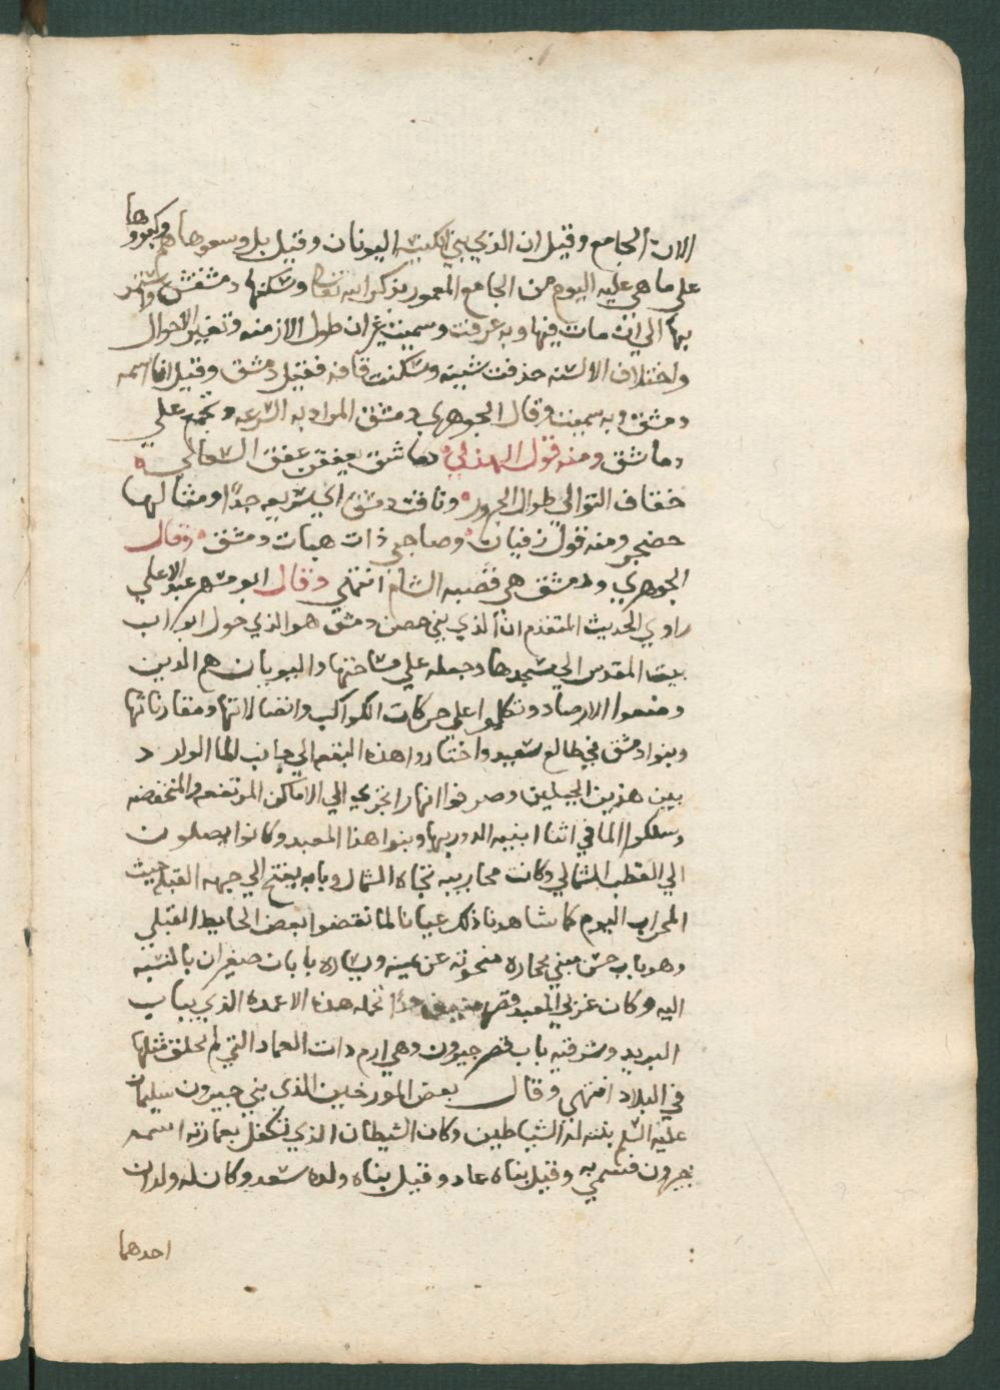 الان الجامع وقيل ان الذي بني الكنيسه اليونان وقيل بل وسعوها هم وكبروها
على ما هي عليه اليوم من الجامع المعمور بذكر الله تعالى وسكنها دمشقش واستمر
بها الي ان مات فيها وبه عرفت وسميت غير ان طول الازمنه وتغير الاحوال
واختلاف الالسنه حذفت شينه وسكنت قافه فقيل دمشق وقيل انما اسمه
دمشق وبه سميت وقال الجوهري دمشق المراد به السرعه وتجمع علي
دماشق ومنه قول الهذلي دماشق يعفقن عفق السعالي
خفاف التوالي طوال الجهور وناقت دمشق اي سريعه جدًا ومثالها
حضجر ومنه قول زفيان وصاحبي ذات هبات دمشق وقال
الجوهري ودمشق هي قصبه الشام انتهي وقال ابو مسهر عبد الاعلي
راوي الحديث المتقدم ان الذي بني حصن دمشق هو الذي حول ابواب
بيت المقدس الي مسجدها وجعله علي مساحتها واليونان هم الدين
وضعوا الارصاد وتكلموا علي حركات الكواكب واتصالاتها ومقارناتها
وبنوا دمشق في طالع سعيد واختاروا هذه البقعه الي جانب الما الوارد
بين هذين الجبلين وصرفوا انهارا تجري الي الاماكن المرتفعه والمنخفضه
وسلكوا الما في اثنا ابنيه الدور بها وبنوا هذا المعبد وكانوا يصلون
الي القطب الشمالي وكانت محاريبه تجاه الشمال وبابه يفتح الي جهه القبله حيث
المحراب اليوم كما شاهدنا ذلك عيانا لما نقضوا بعض الحايط القبلي
وهو باب حسن مبني بحجاره منحوته عن يمينه ويساره بابان صغيران بالنسبه
اليه وكان غربي المعبد قصر منيف جدًا تحمله هذه الاعمده الذي بباب
البريد وشرقيه باب قصر جيرون وهي ارم ذات العماد التي لم يخلق مثلها
في البلاد انتهي وقال بعض المورخين الذي بني جيرون سليمان
عليه السلم بنته له الشياطين وكان الشيطان الذي تكفل بعمارته اسمه
جيرون فسمي به وقيل بناه عاد وقيل بناه ولده سعد وكان له ولدان
احدهما